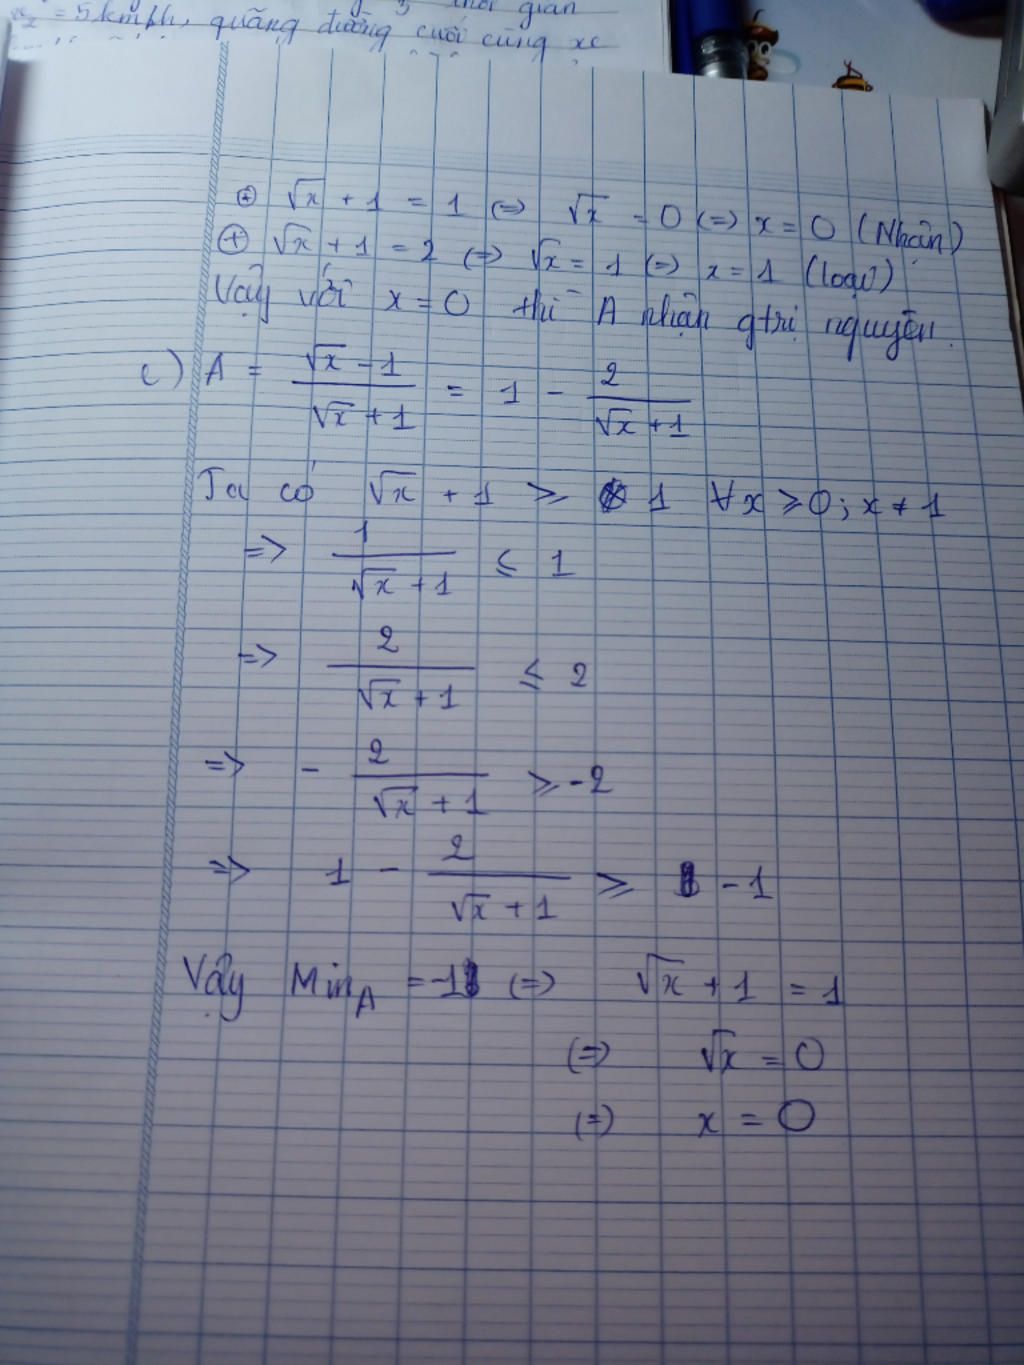 = 5 km/h, quãng đường cuối cùng xe
gian
⊕ √x + 1 = 1 (=> √x = 0 (=> x = 0 (Nhận)
⊕ √x + 1 = 2 (=> √x = 1 (=> x = 1 (loại)
Vậy với x = 0 thì A nhận gtrị nguyên.
c) A = (√x - 1)/(√x + 1) = 1 - 2/(√x + 1)
Ta có √x + 1 ≥ 1 ∀x ≥ 0; x ≠ 1
=> 1/(√x + 1) ≤ 1
=> 2/(√x + 1) ≤ 2
=> - 2/(√x + 1) ≥ -2
=> 1 - 2/(√x + 1) ≥ -1
Vậy Min_A = -1 (=> √x + 1 = 1
(=> √x = 0
(=> x = 0